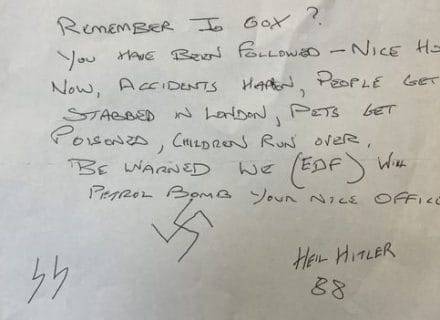 REMEMBER JO COX?
YOU HAVE BEEN FOLLOWED – NICE HO
NOW, ACCIDENTS HAPEN, PEOPLE GET
STABBED IN LONDON, PETS GET
POISONED, CHILDREN RUN OVER.
BE WARNED WE (EDF) WILL
PETROL BOMB YOUR NICE OFFIC
HEIL HITLER
SS
88